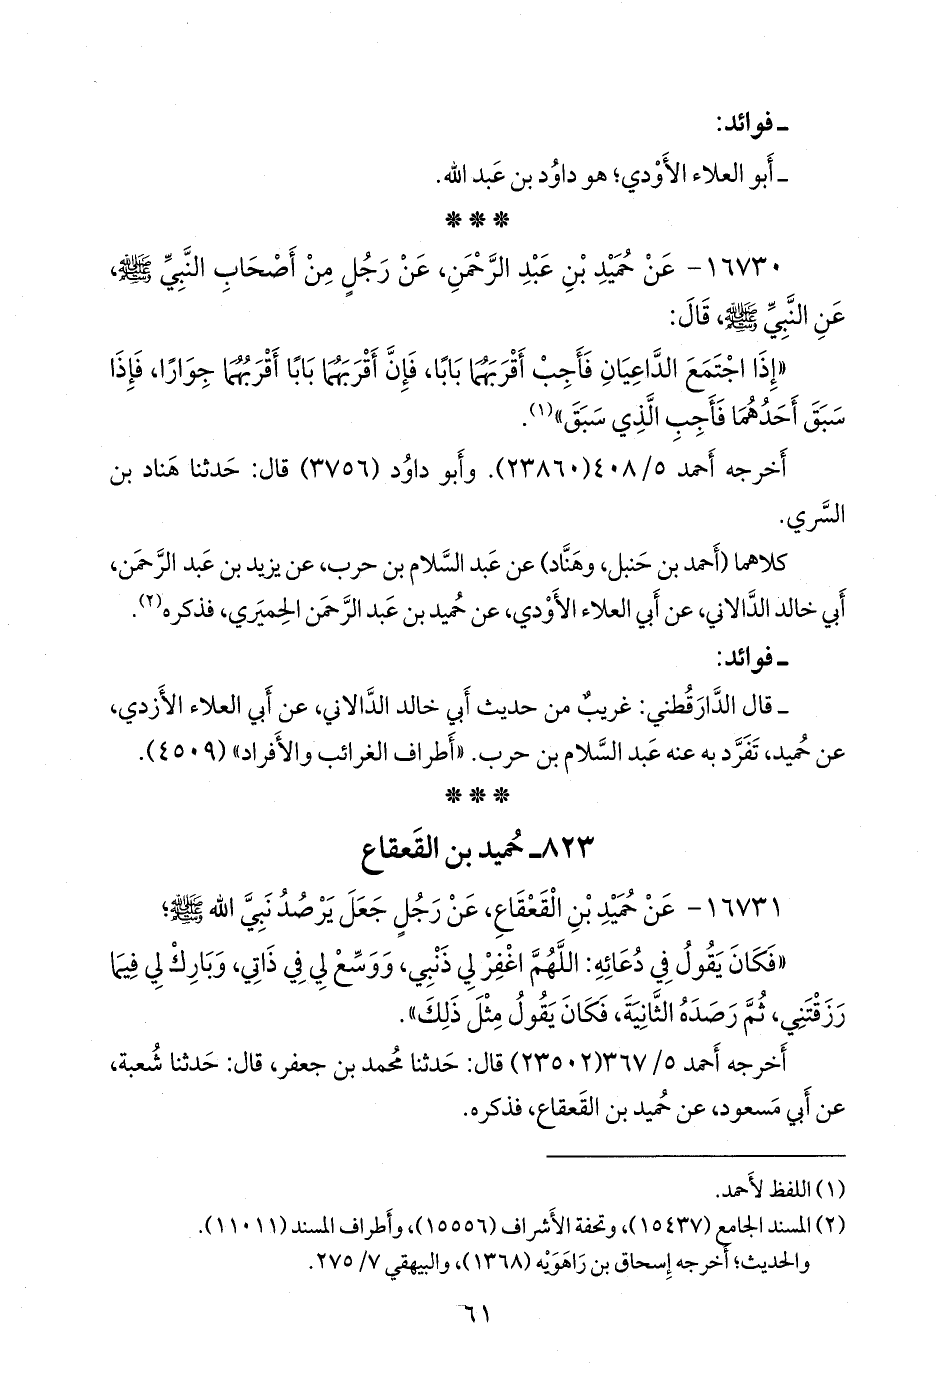 ـ فوائد:
ـ أَبو العلاء الأَوْدي؛ هو داوُد بن عَبد الله.
* * *
١٦٧٣٠- عَنْ حُمَيْدِ بْنِ عَبْدِ الرَّحْمَنِ، عَنْ رَجُلٍ مِنْ أَصْحَابِ النَّبِيِّ ﷺ،
عَنِ النَّبِيِّ ﷺ، قَالَ:
«إِذَا اجْتَمَعَ الدَّاعِيَانِ فَأَجِبْ أَقْرَبَهُمَا بَابًا، فَإِنَّ أَقْرَبَهُمَا بَابًا أَقْرَبُهُمَا جِوَارًا، فَإِذَا
سَبَقَ أَحَدُهُمَا فَأَجِبِ الَّذِي سَبَقَ»(١).
أَخرجه أَحمد ٥/ ٤٠٨(٢٣٨٦٠). وأَبو داوُد (٣٧٥٦) قال: حَدثنا هَناد بن
السَّري.
كلاهما (أَحمد بن حَنبل، وهَنَّاد) عن عَبد السَّلام بن حرب، عن يزيد بن عَبد الرَّحمَن،
أَبي خالد الدَّالاني، عن أَبي العلاء الأَوْدي، عن حُميد بن عَبد الرَّحمَن الحِميَري، فذكره(٢).
ـ فوائد:
ـ قال الدَّارَقُطني: غريبٌ من حديث أَبي خالد الدَّالاني، عن أَبي العلاء الأَزدي،
عن حُميد، تَفَرَّد به عنه عَبد السَّلام بن حرب. «أَطراف الغرائب والأَفراد» (٤٥٠٩).
* * *
٨٢٣ـ حُميد بن القَعقاع
١٦٧٣١- عَنْ حُمَيْدِ بْنِ الْقَعْقَاعِ، عَنْ رَجُلٍ جَعَلَ يَرْصُدُ نَبِيَّ الله ﷺ؛
«فَكَانَ يَقُولُ فِي دُعَائِهِ: اللَّهُمَّ اغْفِرْ لِي ذَنْبِي، وَوَسِّعْ لِي فِي ذَاتِي، وَبَارِكْ لِي فِيمَا
رَزَقْتَنِي، ثُمَّ رَصَدَهُ الثَّانِيَةَ، فَكَانَ يَقُولُ مِثْلَ ذَلِكَ».
أَخرجه أَحمد ٥/ ٣٦٧(٢٣٥٠٢) قال: حَدثنا مُحمد بن جعفر، قال: حَدثنا شُعبة،
عن أَبي مَسعود، عن حُميد بن القَعقاع، فذكره.
(١) اللفظ لأَحمد.
(٢) المسند الجامع (١٥٤٣٧)، وتحفة الأَشراف (١٥٥٥٦)، وأَطراف المسند (١١٠١١).
والحديث؛ أَخرجه إِسحاق بن رَاهَوَيْه (١٣٦٨)، والبيهقي ٧/ ٢٧٥.
٦١